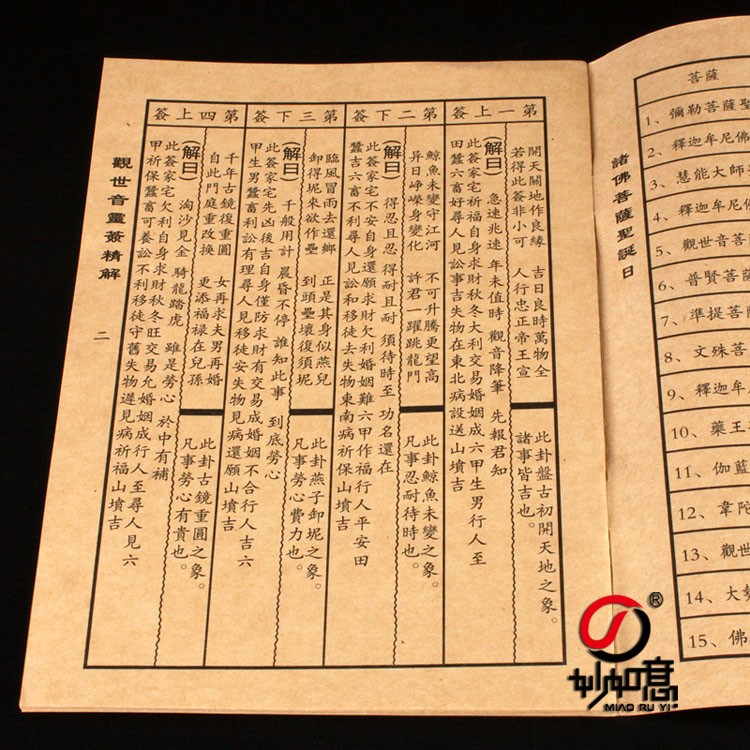 第一上簽
開天關地作良緣 吉日良時萬物全
若得此簽非小可 人行忠正帝王宣
此卦盤古初開天地之象。
諸事皆吉也。
(解曰) 急速兆速 年未值時 觀音降筆 先報君知
此簽家宅祈福自身求財秋冬大利交易婚姻成六甲生男行人至
田蠶六畜好尋人見訟事吉失物在東北病設送山墳吉
第二下簽
鯨魚未變守江河 不可升騰更望高
异日崢嶸身變化 許君一躍跳龍門
此卦鯨魚未變之象。
凡事忍耐待時也。
(解曰) 得忍且忍 得耐且耐 須待時至 功名還在
此簽家宅不安自身還願求財欠利婚姻難六甲作福行人平安田
蠶吉六畜不利尋人見訟和移徒去失物東南病祈保山墳吉
第三下簽
臨風冒雨去還鄉 正是其身似燕兒
卸得坭來欲作壘 到頭壘壞復須坭
此卦燕子卸坭之象。
凡事勞心費力也。
(解曰) 千般用計 晨昏不停 誰知此事 到底勞心
此簽家宅先凶後吉自身僅防求財有交易成婚姻不合行人吉六
甲生男蠶畜利訟有理尋人見移徒安失物見病還願山墳吉
第四上簽
千年古鏡復重圓 女再求夫男再婚
自此門庭重改换 更添福禄在兒孫
此卦古鏡重圓之象。
凡事勞心有貴也。
(解曰) 淘沙見金 騎龍踏虎 雖是勞心 於中有補
此簽家宅欠利自身求財秋冬旺交易允婚姻成行人至尋人見六
甲祈保蠶畜可養訟不利移徒守舊失物遲見病祈福山墳吉
觀世音靈簽精解
二
諸佛菩薩聖誕日
菩薩
1、彌勒菩薩聖
2、釋迦牟尼佛
3、慧能大師
4、釋迦牟尼佛
5、觀世音菩薩
6、普賢菩薩
7、準提菩薩
8、文殊菩
9、釋迦牟
10、藥王
11、伽藍
12、韋陀
13、觀世
14、大勢
15、佛
®
妙如意
MIAO RU YI